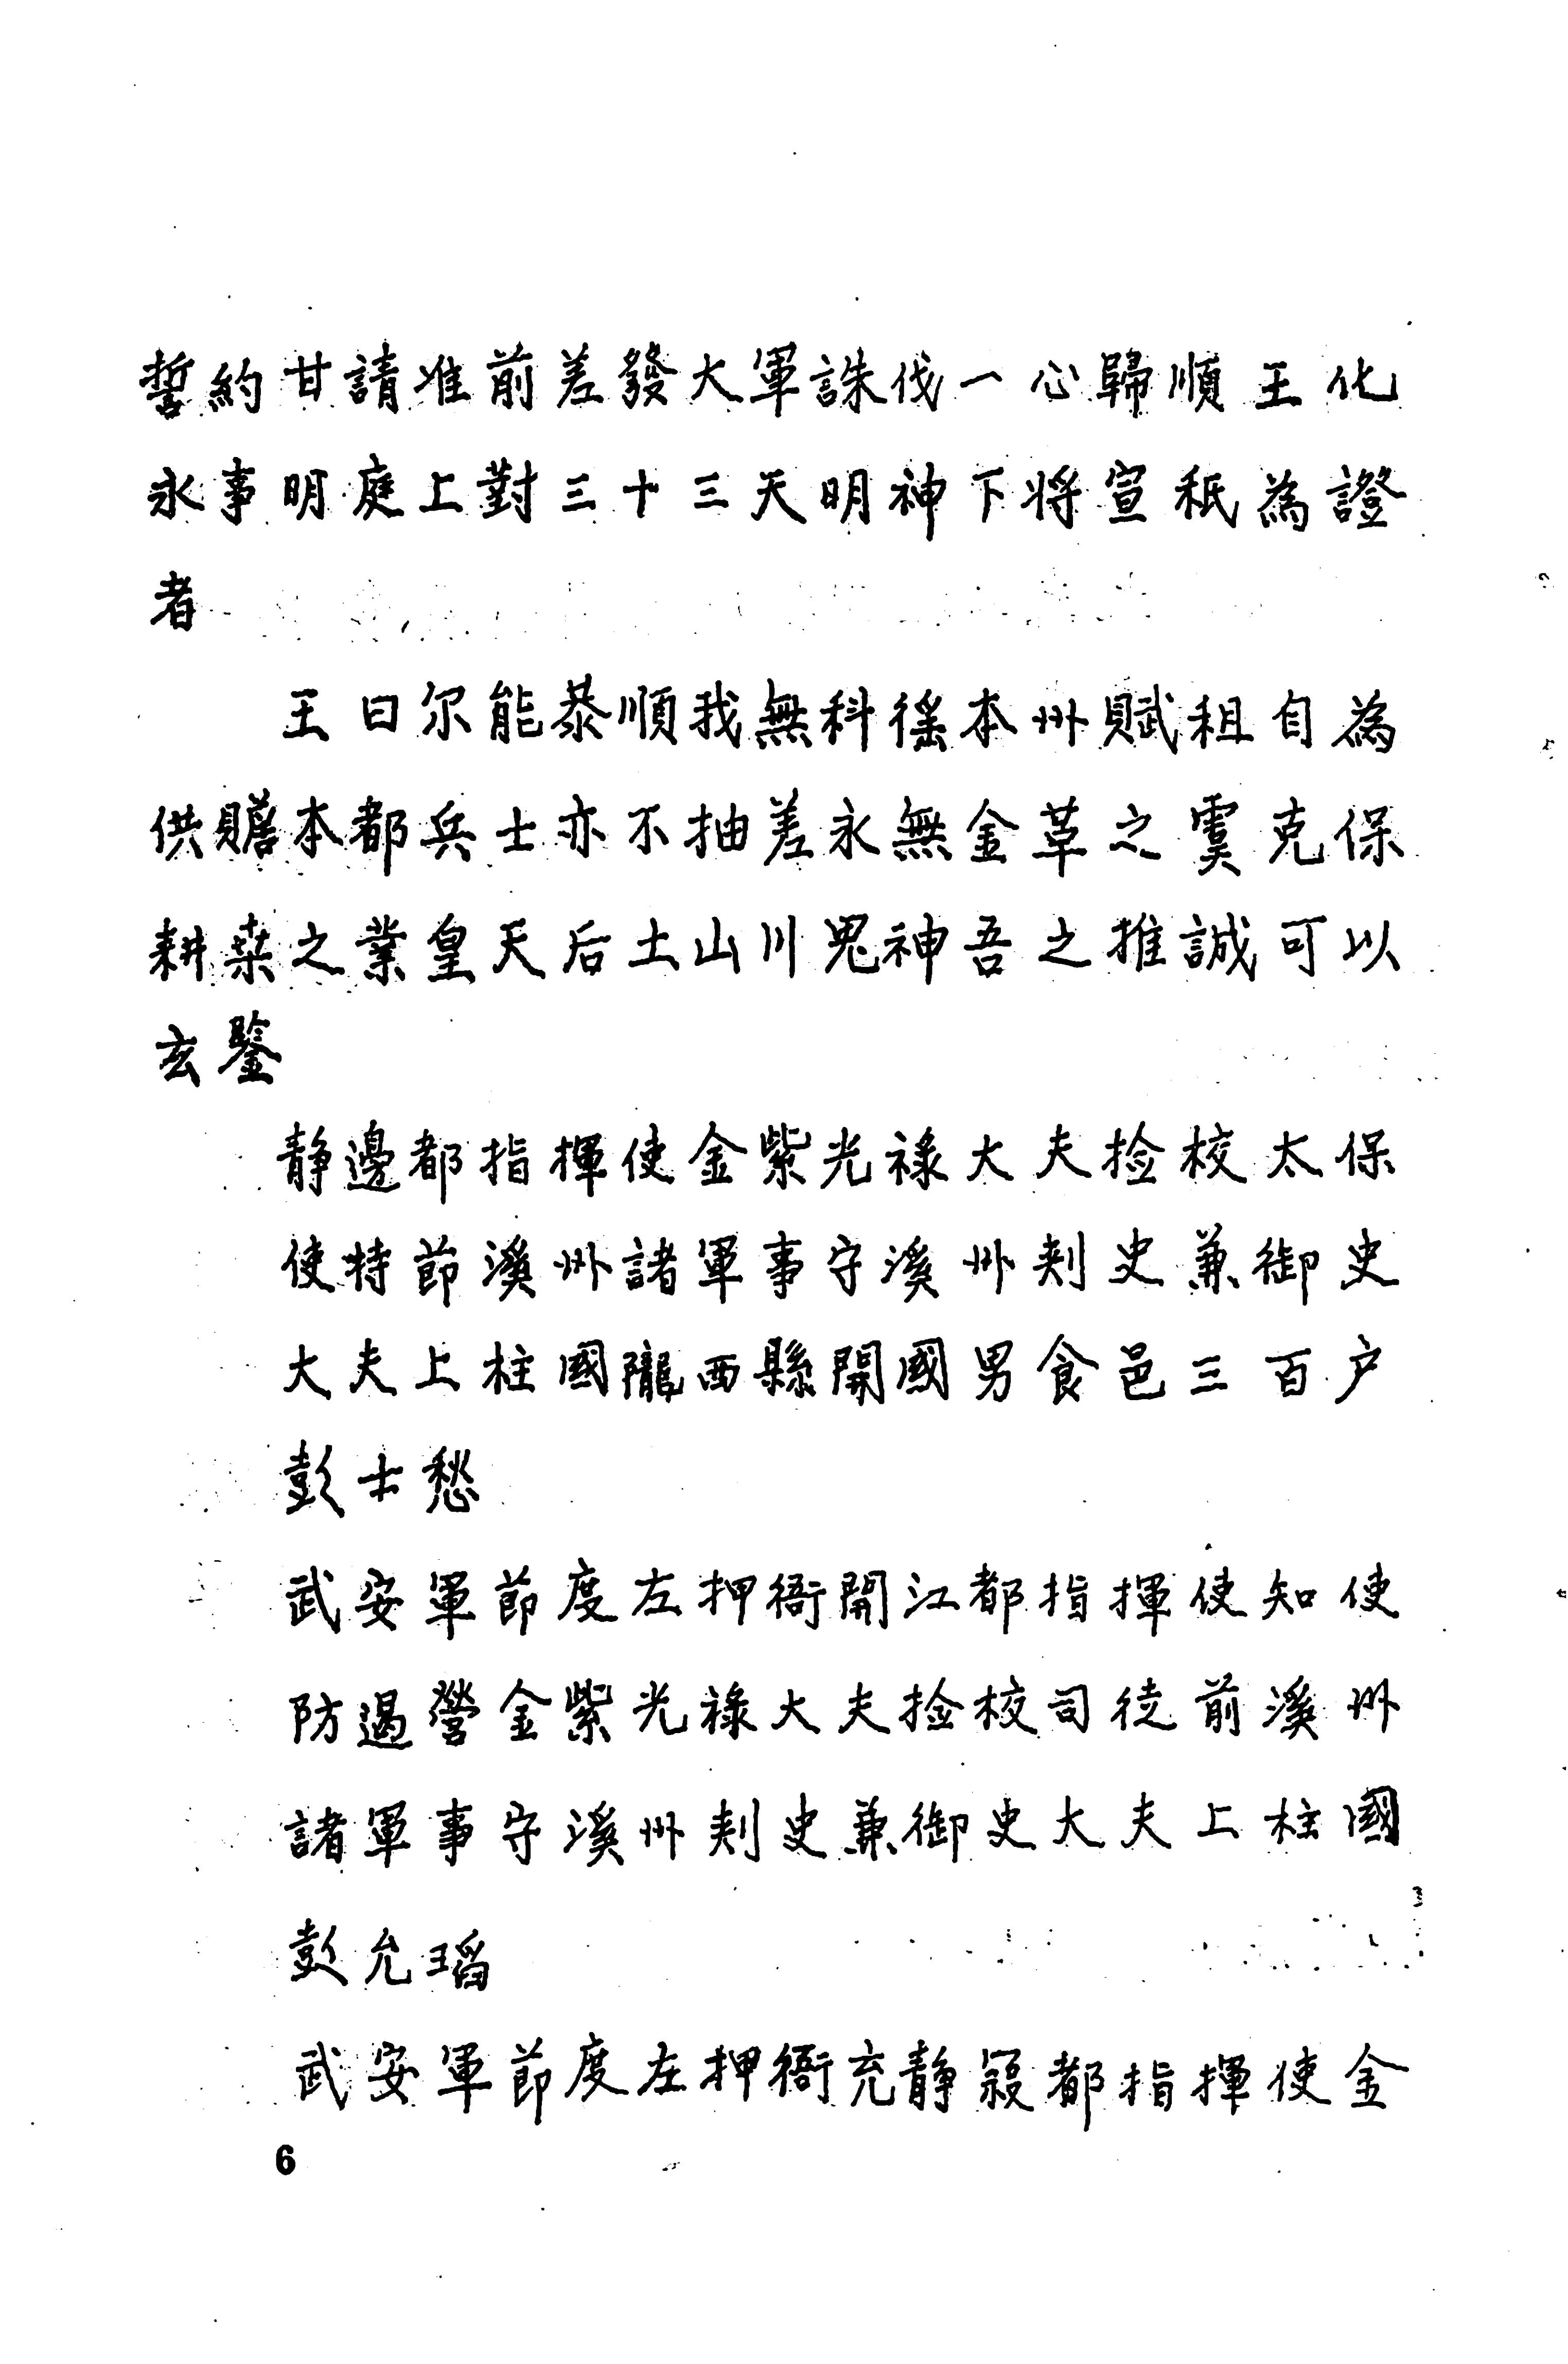 誓約甘請准前差發大軍誅伐一心歸順王化
永事明庭上對三十三天明神下将宣秖為證
者
王曰尔能恭順我無科徭本州賦租自為
供贍本都兵士亦不抽差永無金革之虞克保
耕桒之業皇天后土山川鬼神吾之推誠可以
玄鑒
静邊都指揮使金紫光禄大夫捡校太保
使持節溪州諸軍事守溪州刺史兼御史
大夫上柱國隴西縣開國男食邑三百户
彭士愁
武安軍節度左押衙開江都指揮使知使
防遏營金紫光禄大夫捡校司徒前溪州
諸軍事守溪州刺史兼御史大夫上柱國
彭允瑫
武安軍節度左押衙充静寇都指揮使金
6